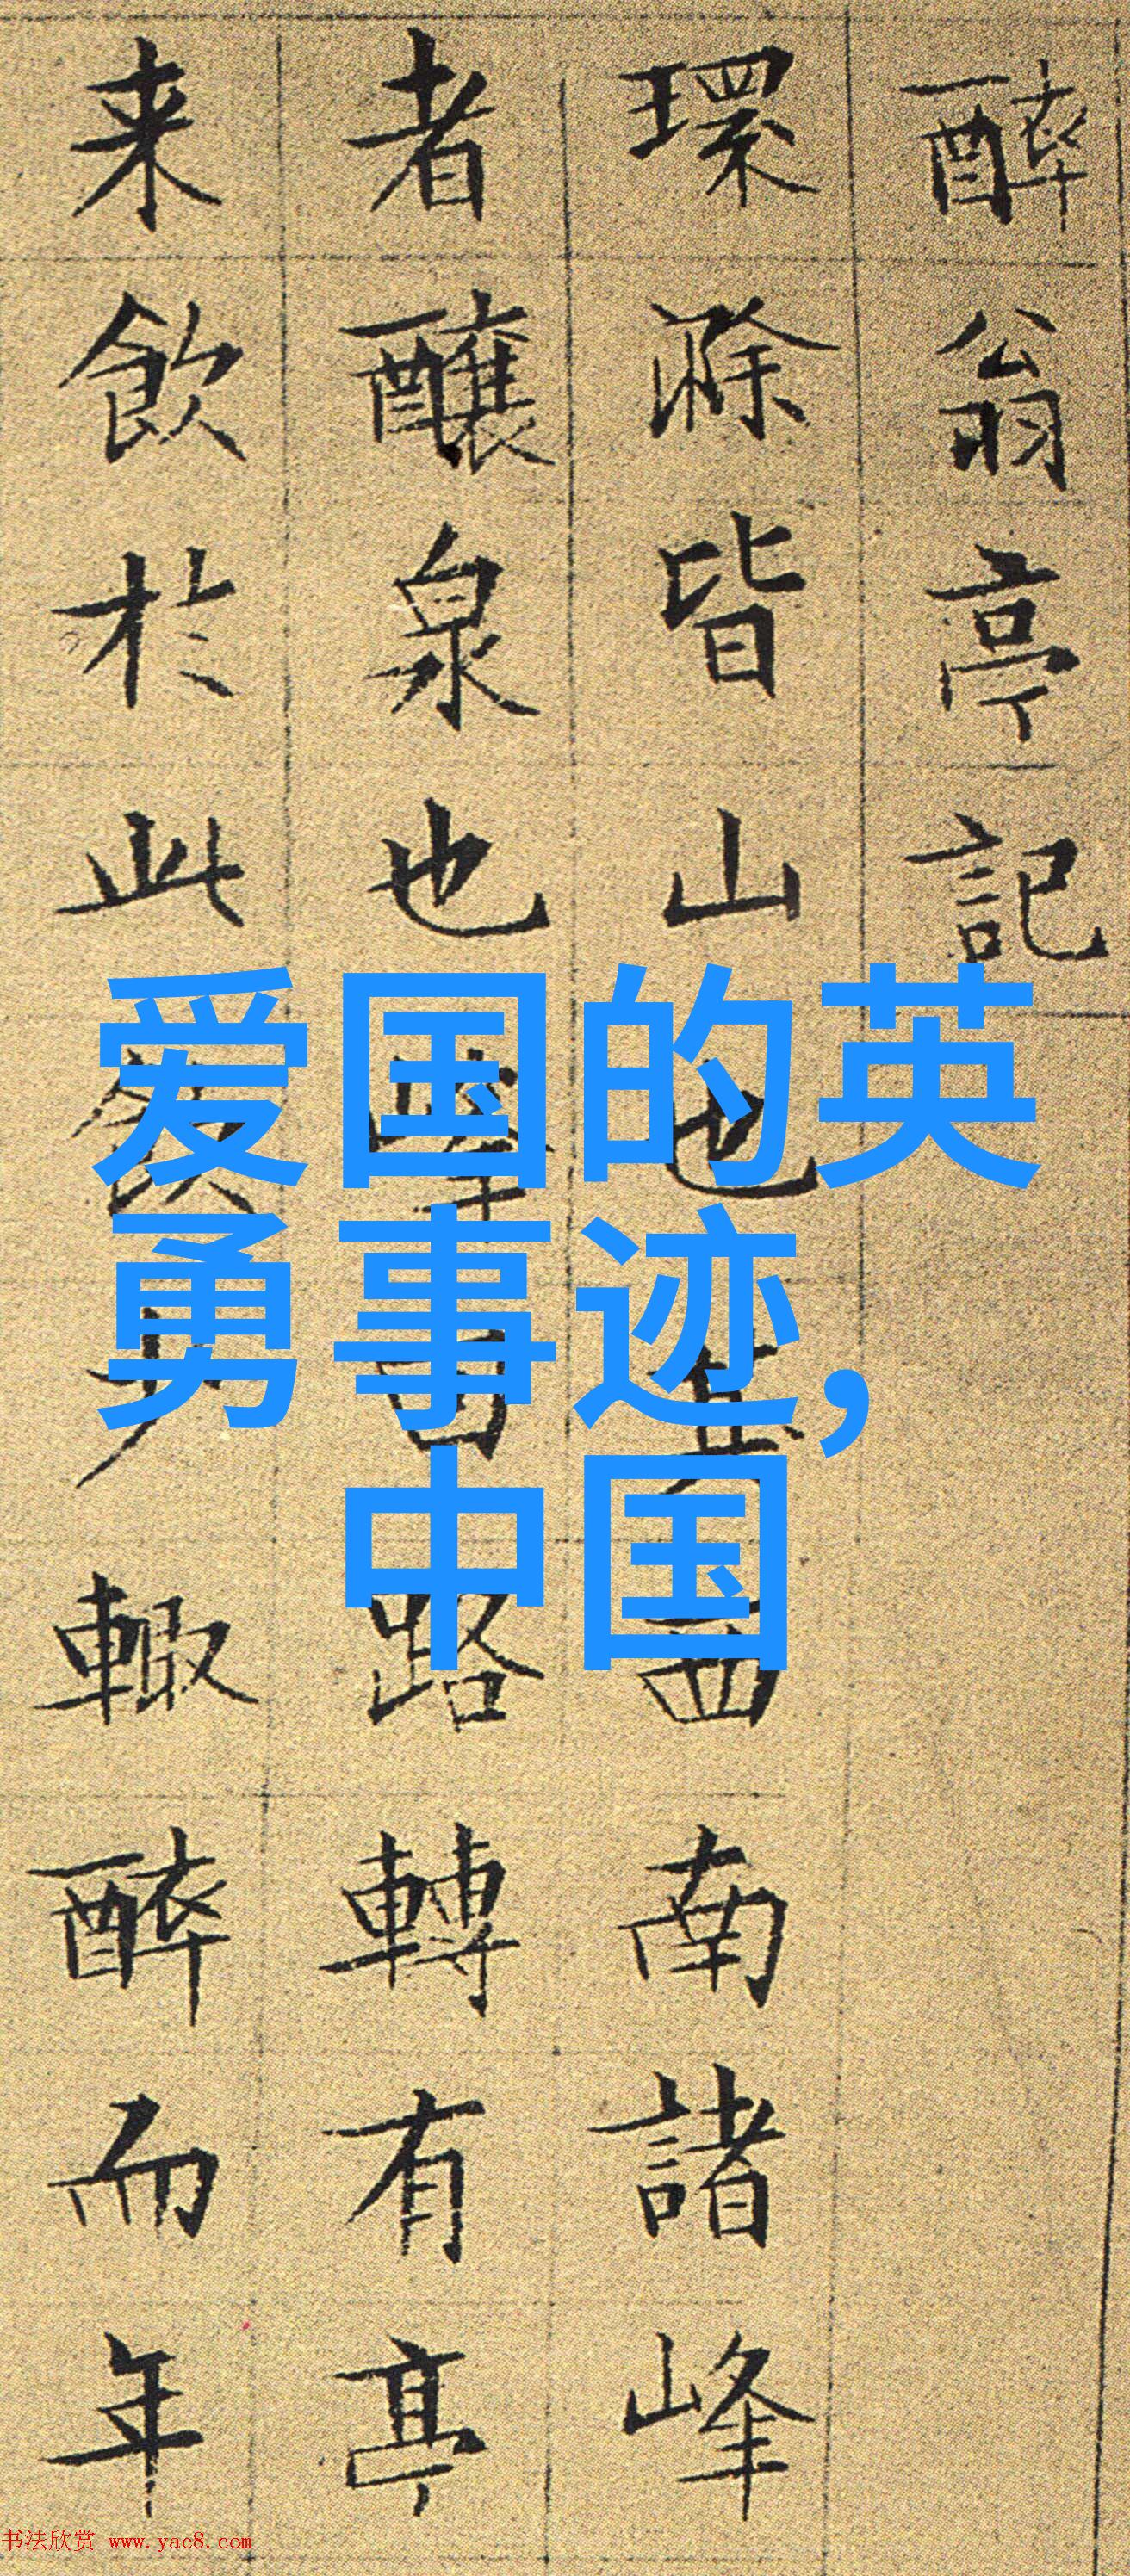 醉翁亭記
環滁皆山也其西南諸峰
者釀泉也回路轉有亭
来飲於此飲少輒醉而年
爱国的英
勇事迹，
中国
书法欣赏 www.yac8.com